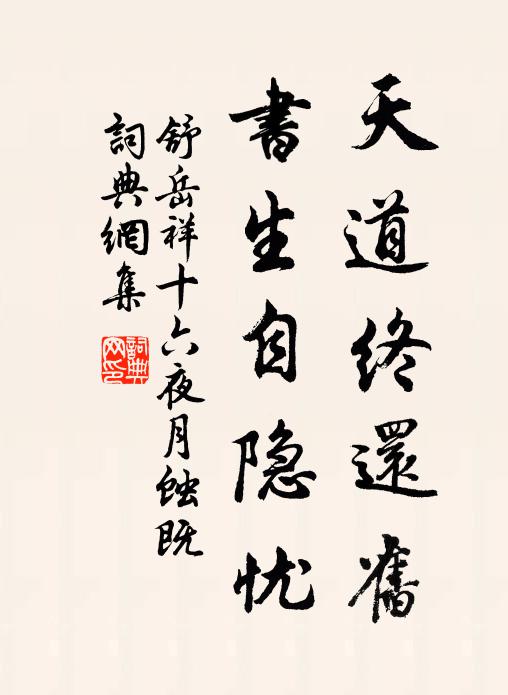 天道終還舊
書生自隐忧
舒岳祥十六夜月蚀既
詞典網集
詞典網印